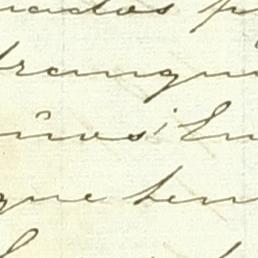 uados p
tranqui
ños; En
que ten